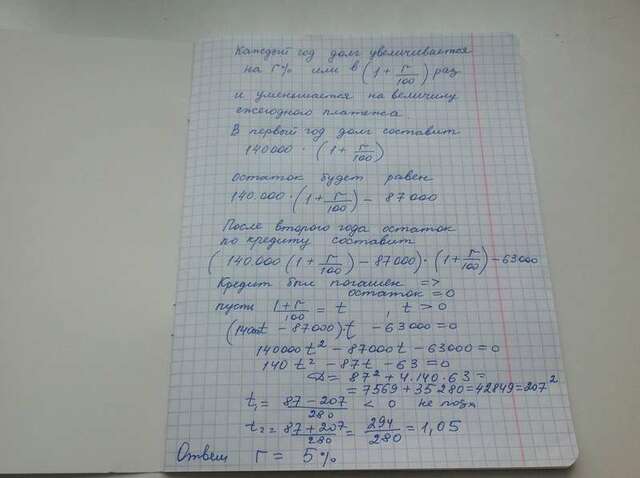 Каждый год долг увеличивается
на r% или в (1 + r/100) раз
и уменьшается на величину
ежегодного платежа.
В первый год долг составит
140000 · (1 + r/100)
остаток будет равен
140.000 · (1 + r/100) - 87000
После второго года остаток
по кредиту составит
(140.000 (1 + r/100) - 87000) · (1 + r/100) - 63000
Кредит был погашен =>
остаток = 0
пусть 1 + r/100 = t , t > 0
(140000t - 87000)t - 63000 = 0
140000t² - 87000t - 63000 = 0
140t² - 87t - 63 = 0
D = 87² + 4·140·63 =
= 7569 + 35280 = 42849 = 207²
t₁ = 87 - 207/280 < 0 не подх
t₂ = 87 + 207/280 = 294/280 = 1,05
Ответ r = 5%